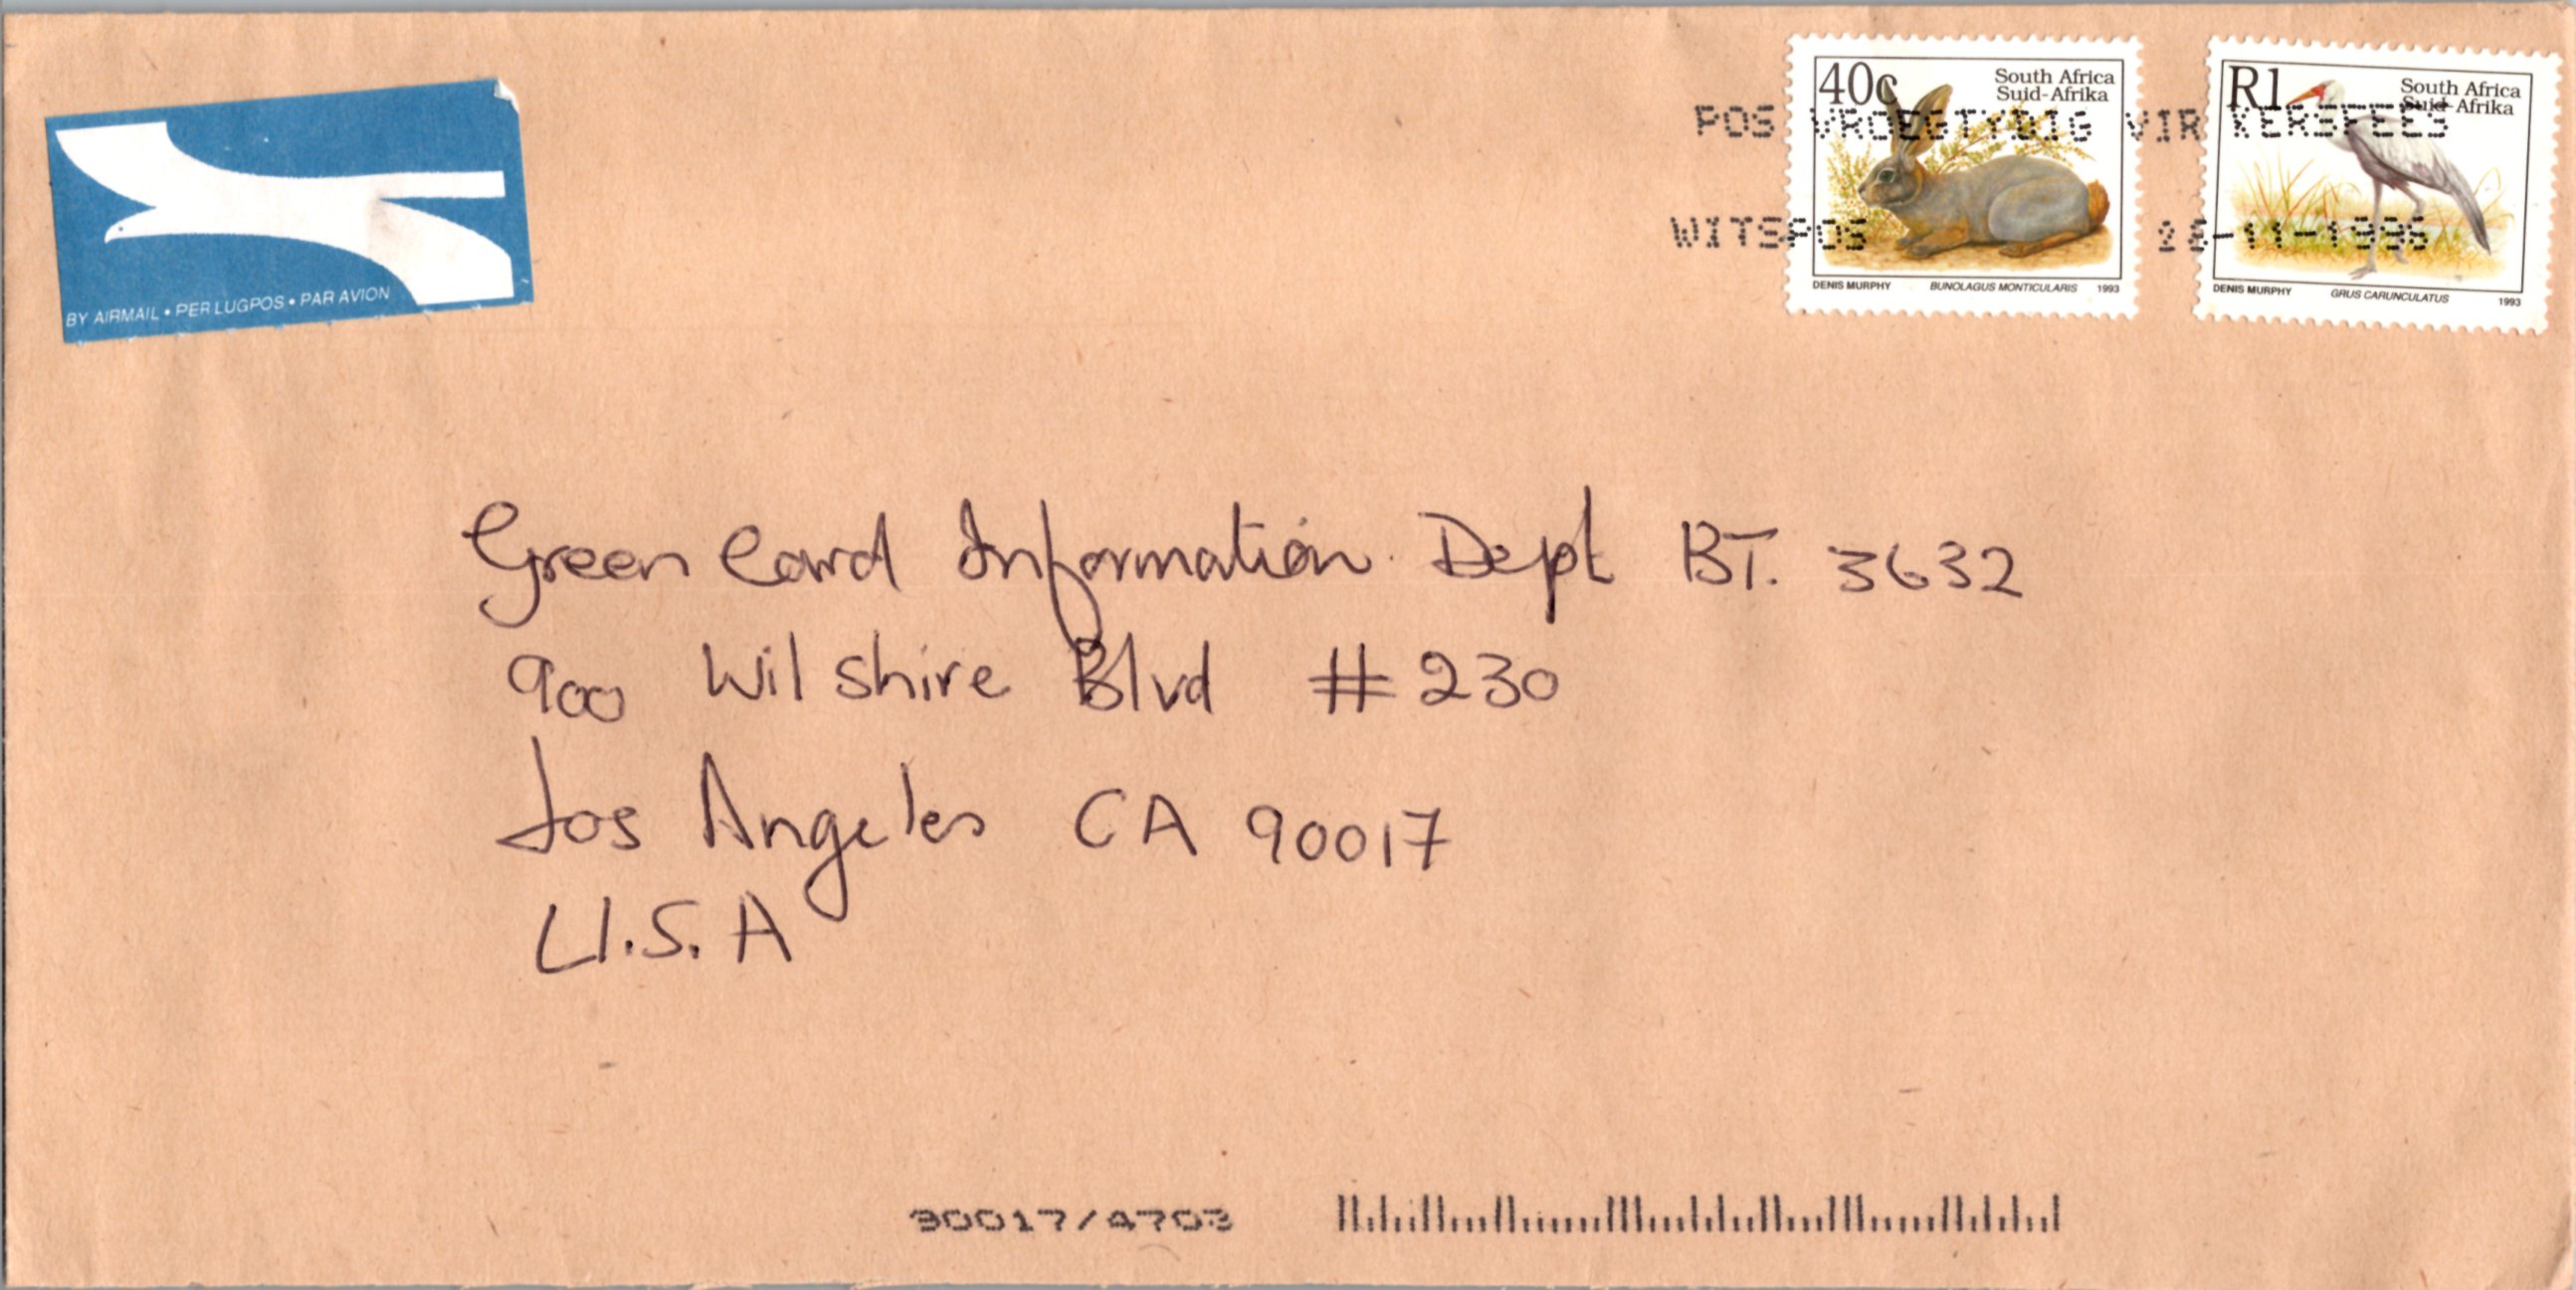 BY AIRMAIL • PER LUGPOS • PAR AVION
40c
South Africa
Suid-Afrika
DENIS MURPHY BUNOLAGUS MONTICULARIS 1993
R1
South Africa
Suid-Afrika
DENIS MURPHY GRUS CARUNCULATUS 1993
POS VROEGTYDIG VIR KERSFEES
WITSPOS
Green Card Information Dept BT. 3632
900 Wilshire Blvd # 230
Los Angeles CA 90017
U.S.A
90017/4703